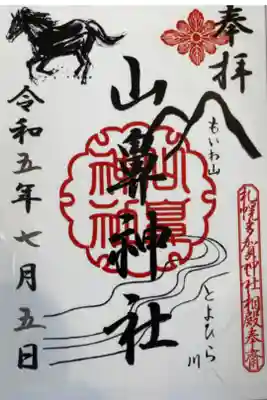 奉拝
もいわ山
山鼻神社
とよひら川
令和五年七月五日
札幌多賀神社相殿奉斎